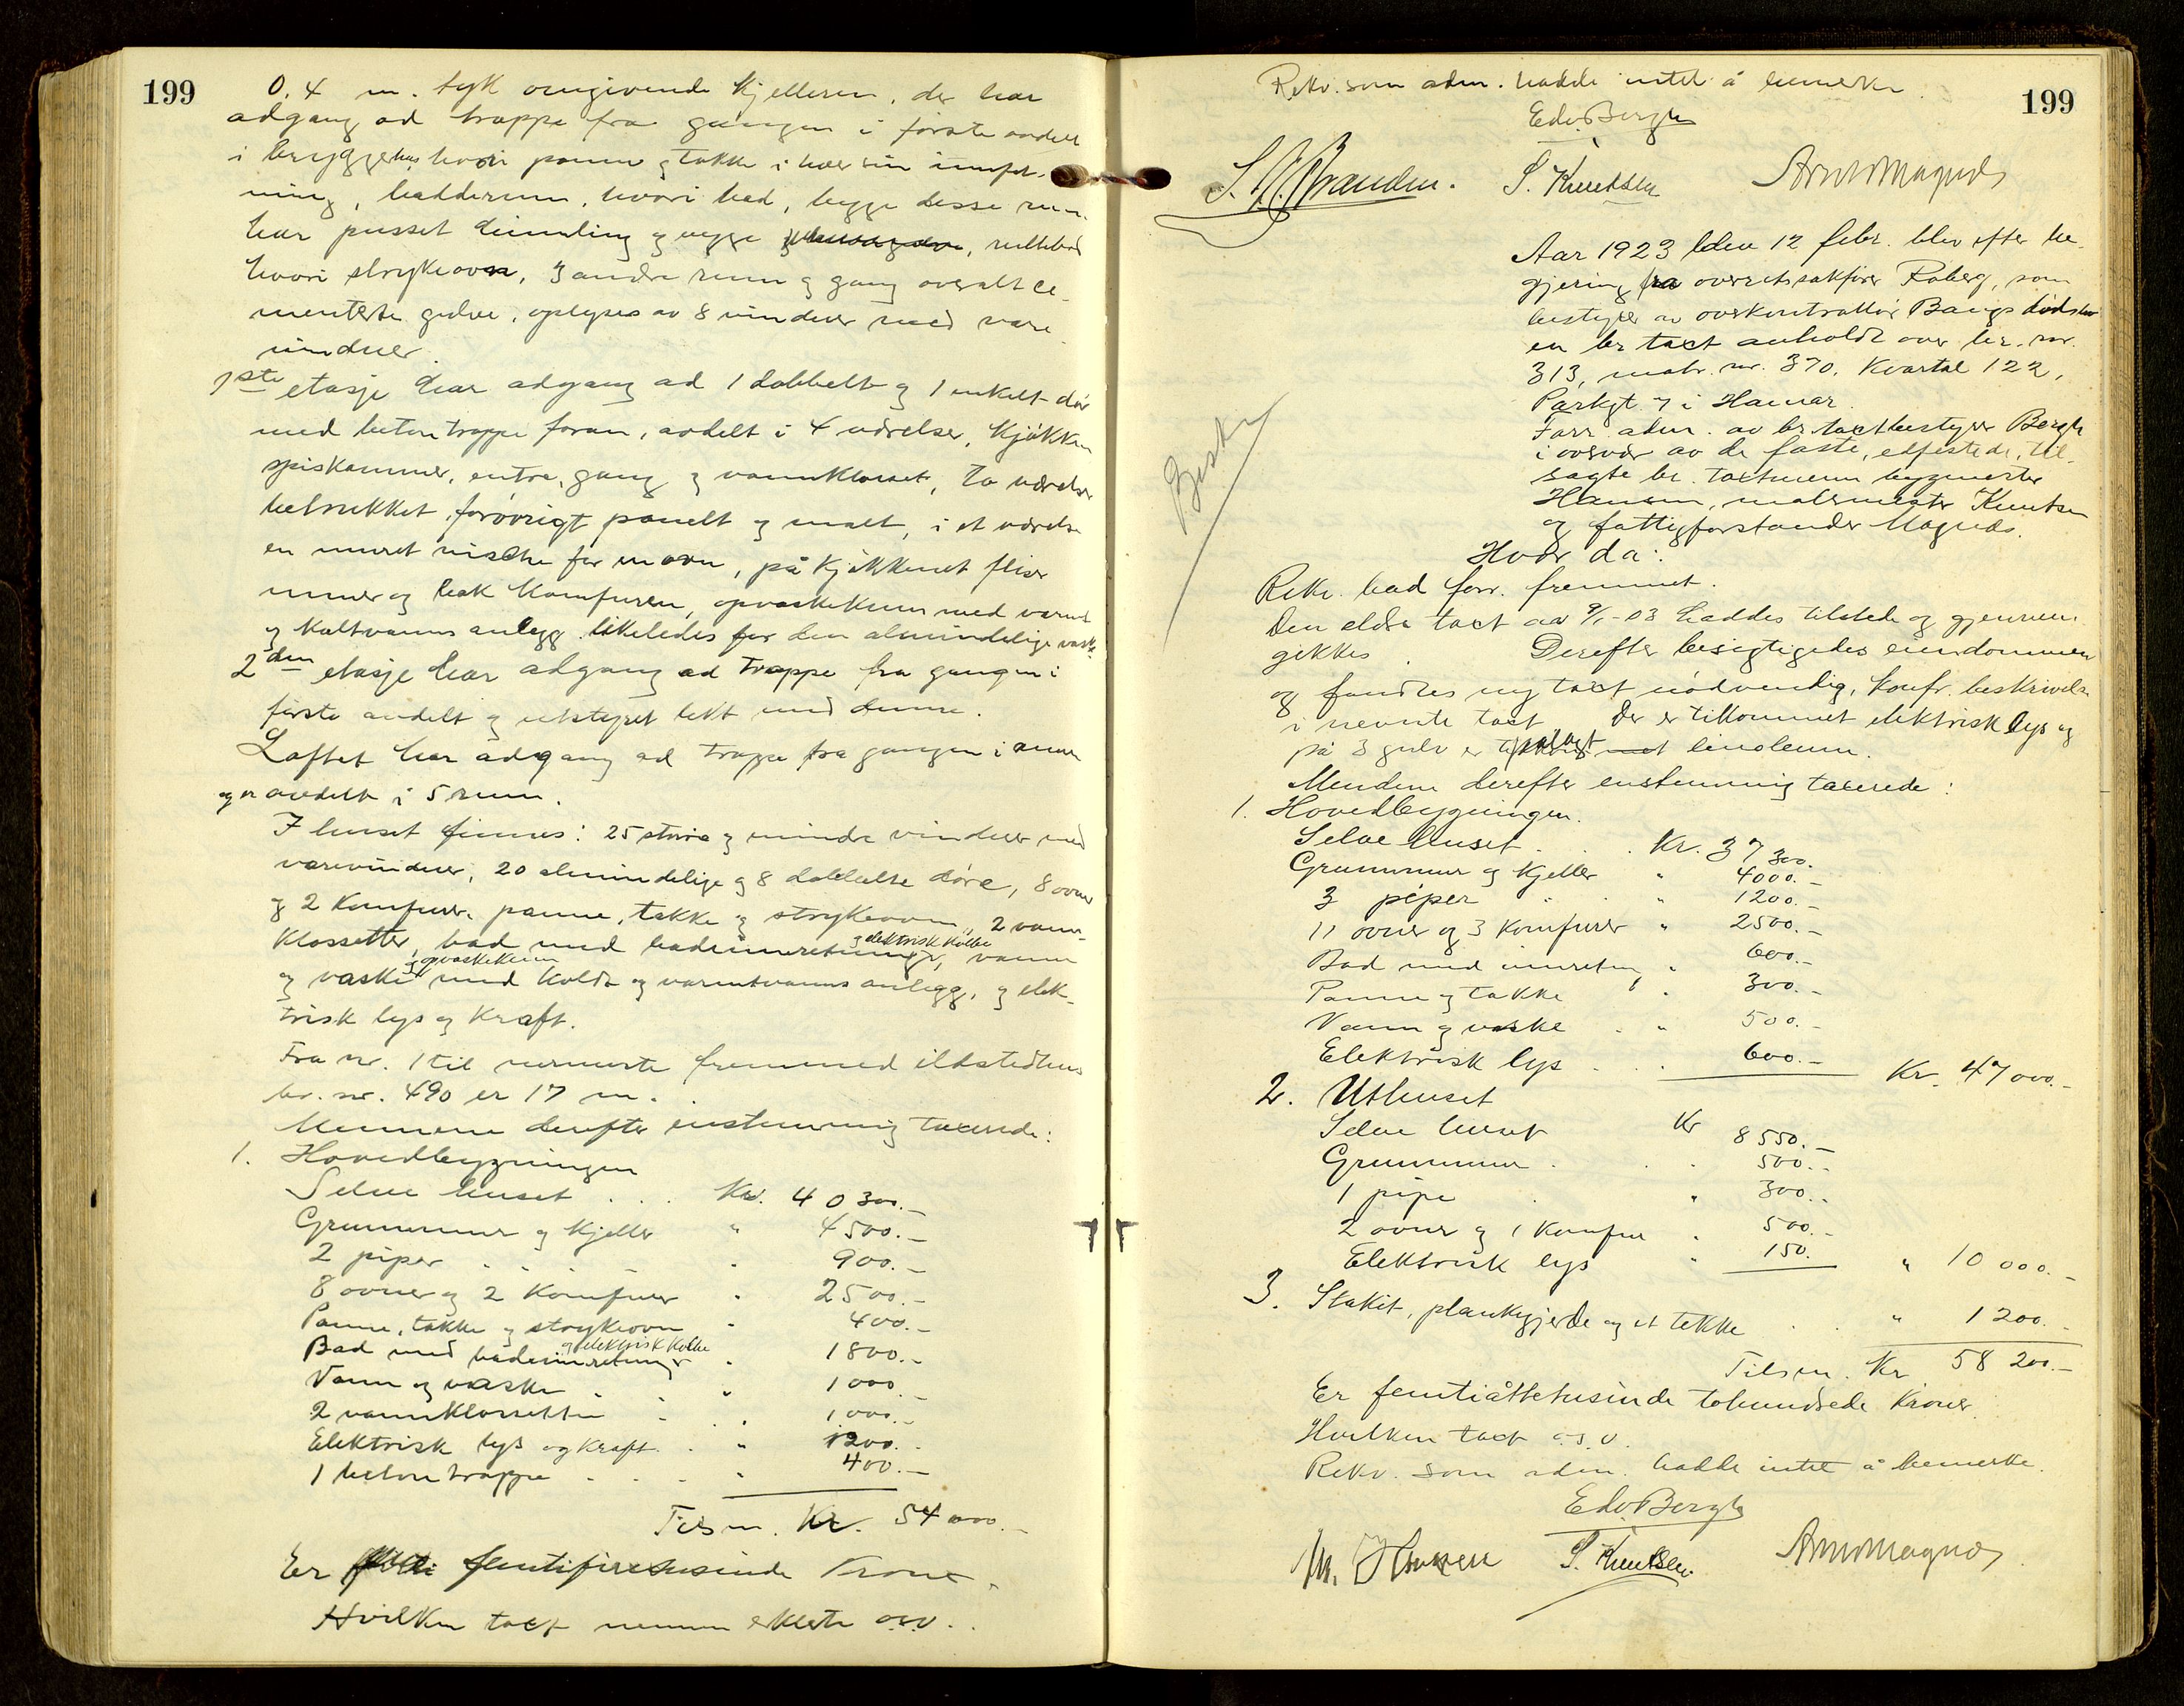 199
0.4 m. tyk omgivende kjelleren, der har
adgang ad trappe fra gangen i første avdelt
i bryggerhus hvori panne og takke i hver sin innfat-
ning, badderum, hvori bad, begge disse rum
har pusset himmling og vegge, rullebod
hvori strykeovn, 3 andre rum og gang overalt ce-
menterte gulve, oplyses av 8 vinduer med vare
vinduer.
1ste etasje har adgang ad 1 dobbelt og 1 enkelt dør
med beton trappe foran, avdelt i 4 værelser, kjøkken
spiskammer, entre, gang og vannklosset, to værelser
betrukket, forøvrigt panelt og malt, i et værelse
en muret nische for en ovn, på kjøkkenet fliser
under og bak komfuren, opvaskekum med varmt
og koltvanns anlegg likeledes for den almindelige vask.
2den etasje har adgang ad trappe fra gangen i
første avdelt og utstyret likt med denne.
Loftet har adgang ad trappe fra gangen i annen
og er avdelt i 5 rum.
I huset finnes: 25 større og mindre vinduer med
varevinduer, 20 almindelige og 8 dobbelte døre, 8 ovner
og 2 komfurer, panne, takke og strykeovn, 2 vann-
klossetter, bad med badeinnretninger, vann
og elektrisk kolbe
og vaske med koldt og varmtvanns anlegg, og elek-
og opvaskekum
trisk lys og kraft.
Fra nr. 1 til nærmeste fremmed ildstedhus
br. nr. 490 er 17 m.
Mennene derefter enstemmig taxerede:
1. Hovedbygningen
Selve huset . . . Kr. 40 300.-
Grunnmur og kjeller " 4500.-
2 piper . . . " 900.-
8 ovner og 2 komfurer " 2500.-
Panne, takke og strykeovn " 400.-
Bad med badeinnretninger " 1800.-
og elektrisk kolbe
Vann og vaske . " 1000.-
2 vannklossetter . " 1000.-
Elektrisk lys og kraft . " 1200.-
1 beton trappe . . . " 400.-
Tilsm. Kr. 54 000.-
Er femtifiretusinde Kroner.
Hvilken taxt mennene erklærte o.s.v.
199
Rekv. som adm. hadde intet å bemerke
Edv. Bergh
S. Knutsen Arnt Magnæs
Aar 1923 den 12 febr. blev efter be-
gjering fra overretssakfører Raberg, som
bestyrer av overkontrollør Bangs dødsbo
en br. taxt avholdt over br. nr.
313, matr. nr. 370, Kvartal 122,
Parkgt 7 i Hamar.
Forr. adm. av br. taxtbestyrer Bergh
i overvær av de faste, edfestede, til-
sagte br. taxtmenn bygmester
Hansen, malermester Knutsen
og fattigforstander Magnæs.
Hvor da:
Bestyr
Rekv. bad forr. fremmet.
Den eldre taxt av 9/1-03 haddes tilstede og gjennem-
gikkes. Derefter besigtigedes eiendommen
og fandtes ny taxt nødvendig, konfr. beskrivelse
i nevnte taxt. Der er tilkommet elektrisk lys og
på 3 gulv er pålagt linoleum.
Mendene derefter enstemmig taxerede:
1. Hovedbygningen.
Selve huset . . . Kr. 37 300.-
Grunnmur og kjeller " 4000.-
3 piper . . " 1200.-
11 ovner og 3 komfurer " 2500.-
Bad med innretn. " 600.-
Panne og takke " 300.-
Vann og vaske . " 500.-
Elektrisk lys . . . 600.- Kr. 47 000.-
2. Uthuset
Selve huset Kr 8550.-
Grunnmur . . . 500.-
1 pipe . " 300.-
2 ovner og 1 komfur . 500.-
Elektrisk lys " 150. " 10 000.-
3. Stakit, plankgjerde og et tekke . . " 1 200.-
Tilsm. Kr 58 200.-
Er femtiåttetusinde tohundrede Kroner.
Hvilken taxt o.s.v.
Rekv. som adm. hadde intet å bemerke.
Edv. Bergh
M. Hansen S. Knutsen Arnt Magnæs